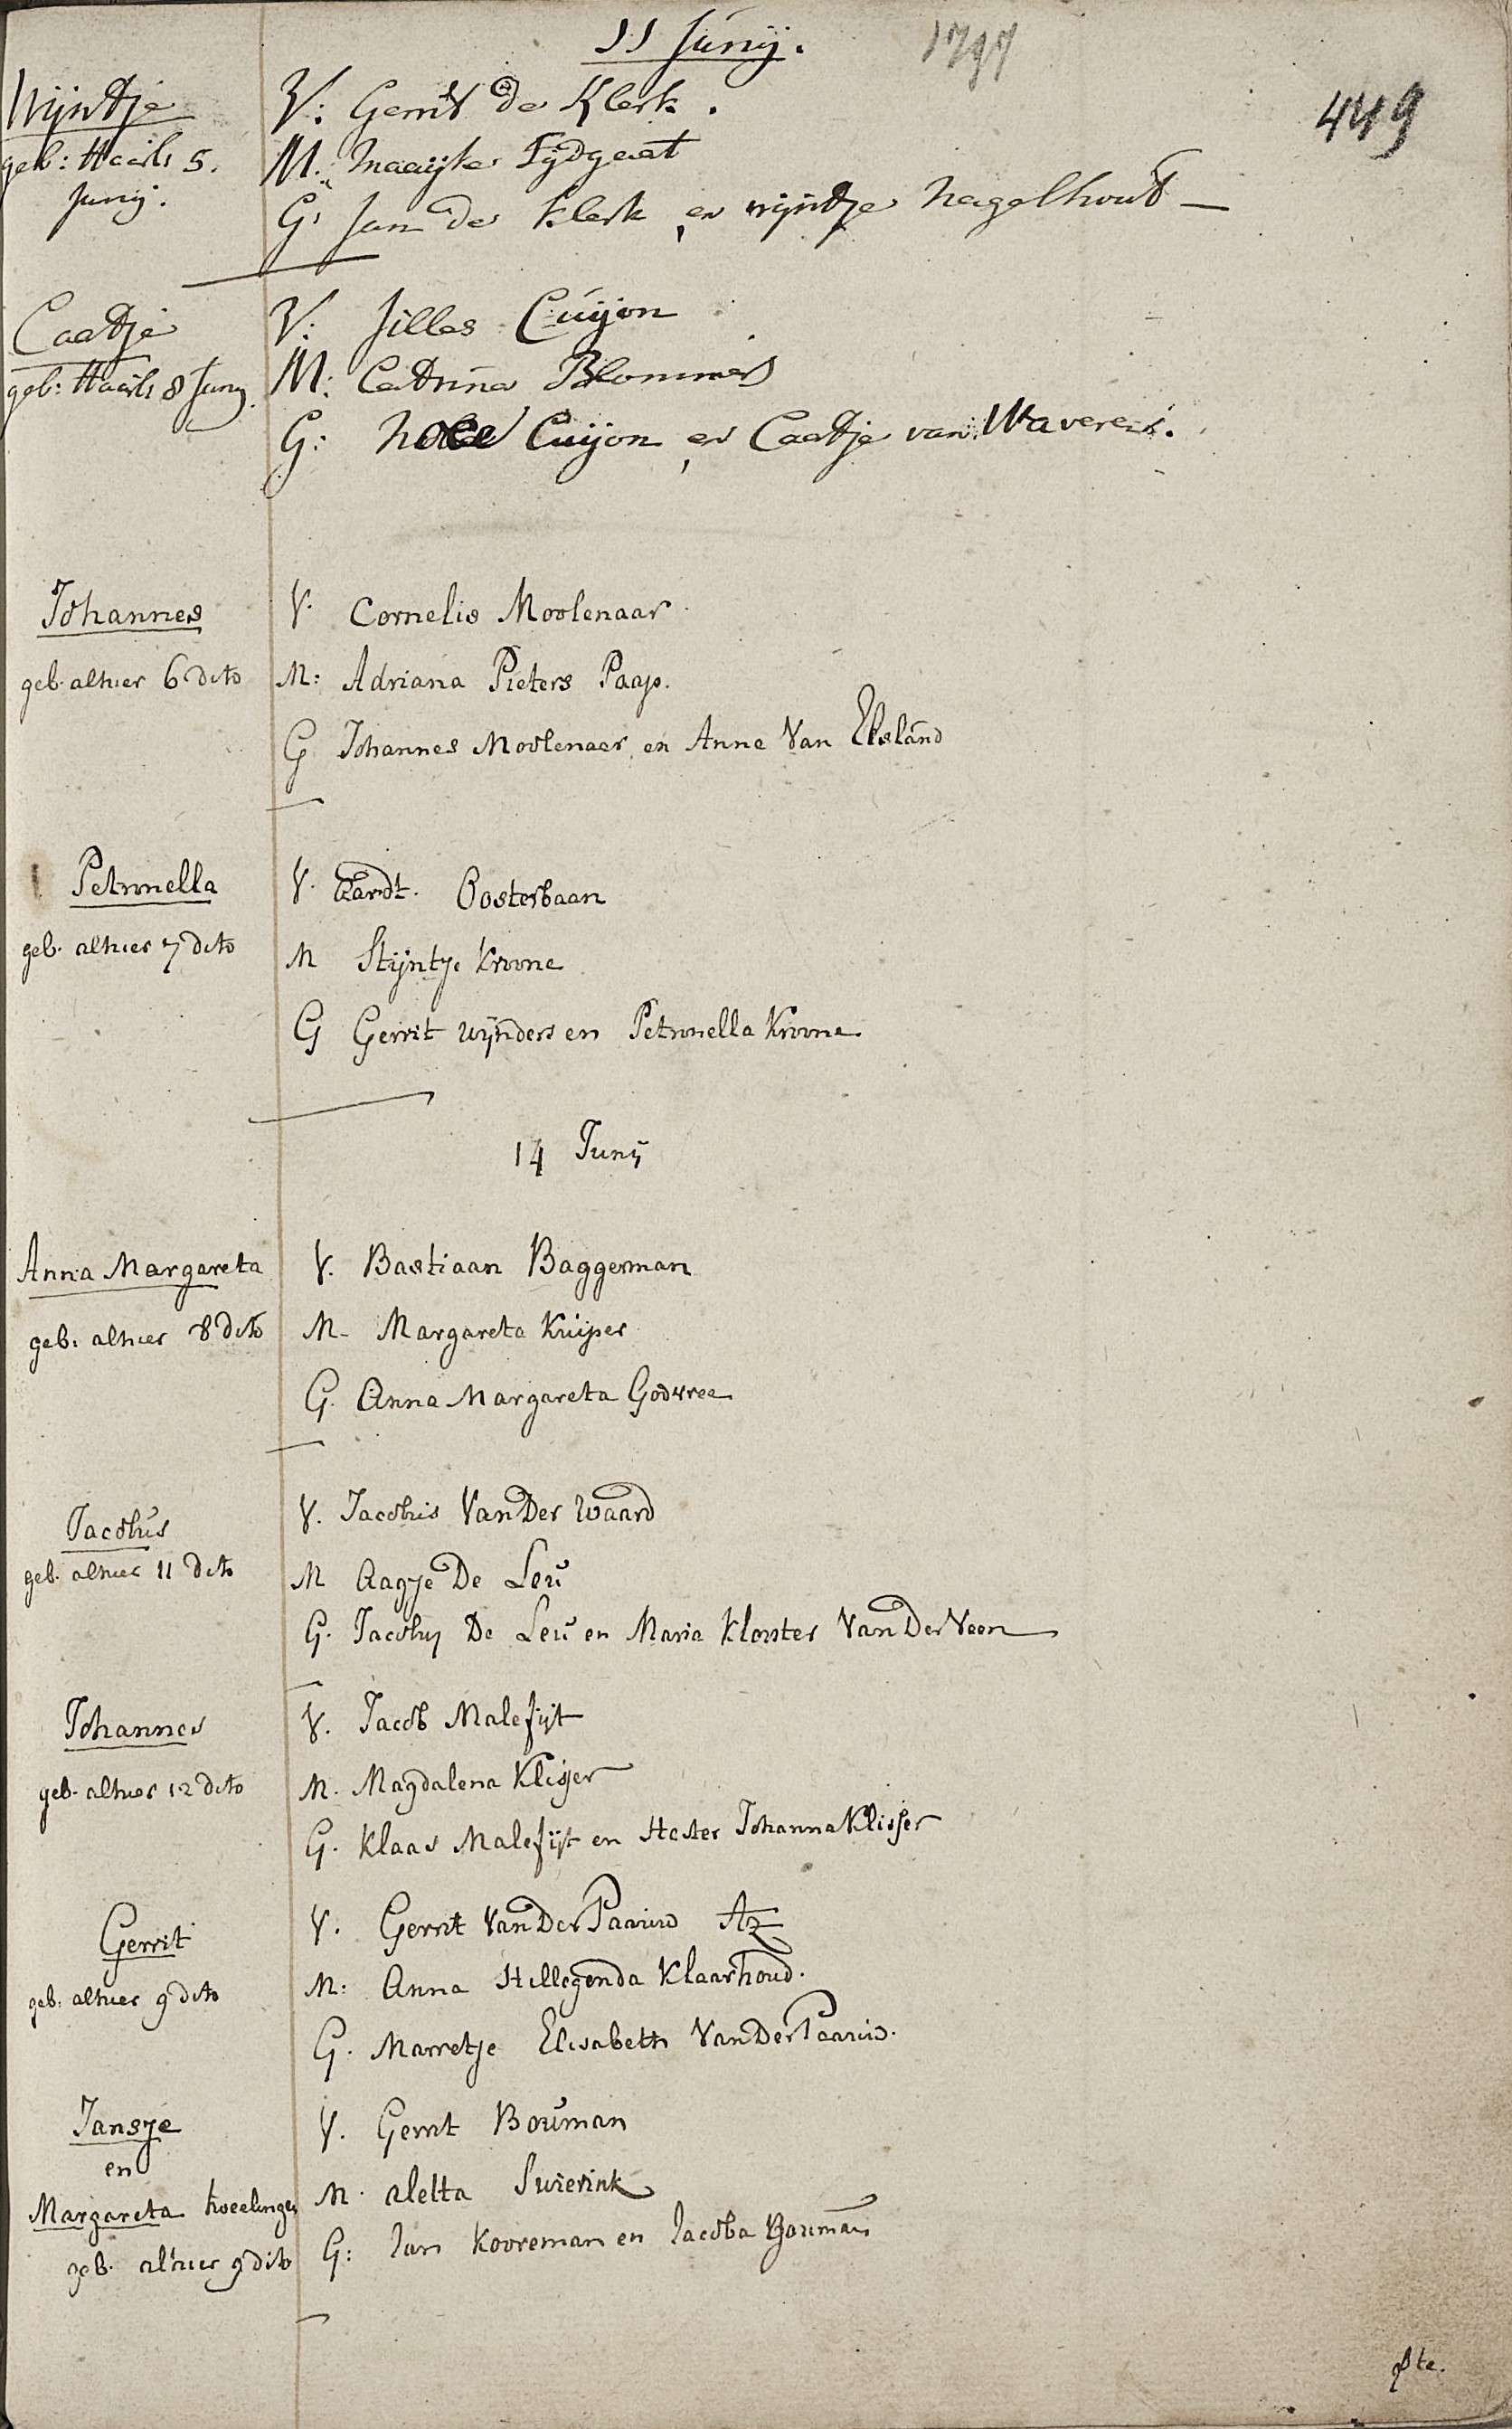 11 Junij. 1797
449
Wijntje
geb: Haarls 5.
Junij.
V: Gerrit de Klerk.
M: Maaijke Tijdgaat
G: Jan de Klerk, en wijntje Nagelhout
Caatje
geb: Haarls 8 Junij.
V: Jilles Cuijon
M: Catrina Blommes
G: Cuijon, en Caatje van Waveren.
Johannes
geb. alhier 6 dito
V. Cornelis Moolenaar
M: Adriana Pieters Paap.
G Johannes Moolenaer en Anne Van Elsland
Petronella
geb. alhier 7 dito
V. Aarndt. Oosterbaan
M Stijntje Kroone
G Gerrit wijnders en Petronella Kroone
14 Junij
Anna Margareta
geb. alhier 8 dito
V. Bastiaan Baggerman
M- Margareta Kuijper
G. Anna Margareta Godvree
Jacobus
geb. alhier 11 dito
V. Jacobus Van Der Waard
M Aagje De Leu
G. Jacobus De Leu en Maria Klouster Van Der Veen
Johannes
geb. alhier 12 dito
V. Jacob Malefijt
M. Magdalena Klisser
G. Klaas Malefijt en Hester Johanna Klisser
Gerrit
geb. alhier 9 dito
V. Gerrit Van Der Paauw Az
M: Anna Hillegonda Klaarhoud.
G. Marretje Elisabeth Van Der Paauw.
Jansje
en
Margareta tweelingen
geb. alhier 9 dito
V. Gerrit Bouman
M. aletta Swierink
G: Jan Kooreman en Jacoba Bouman